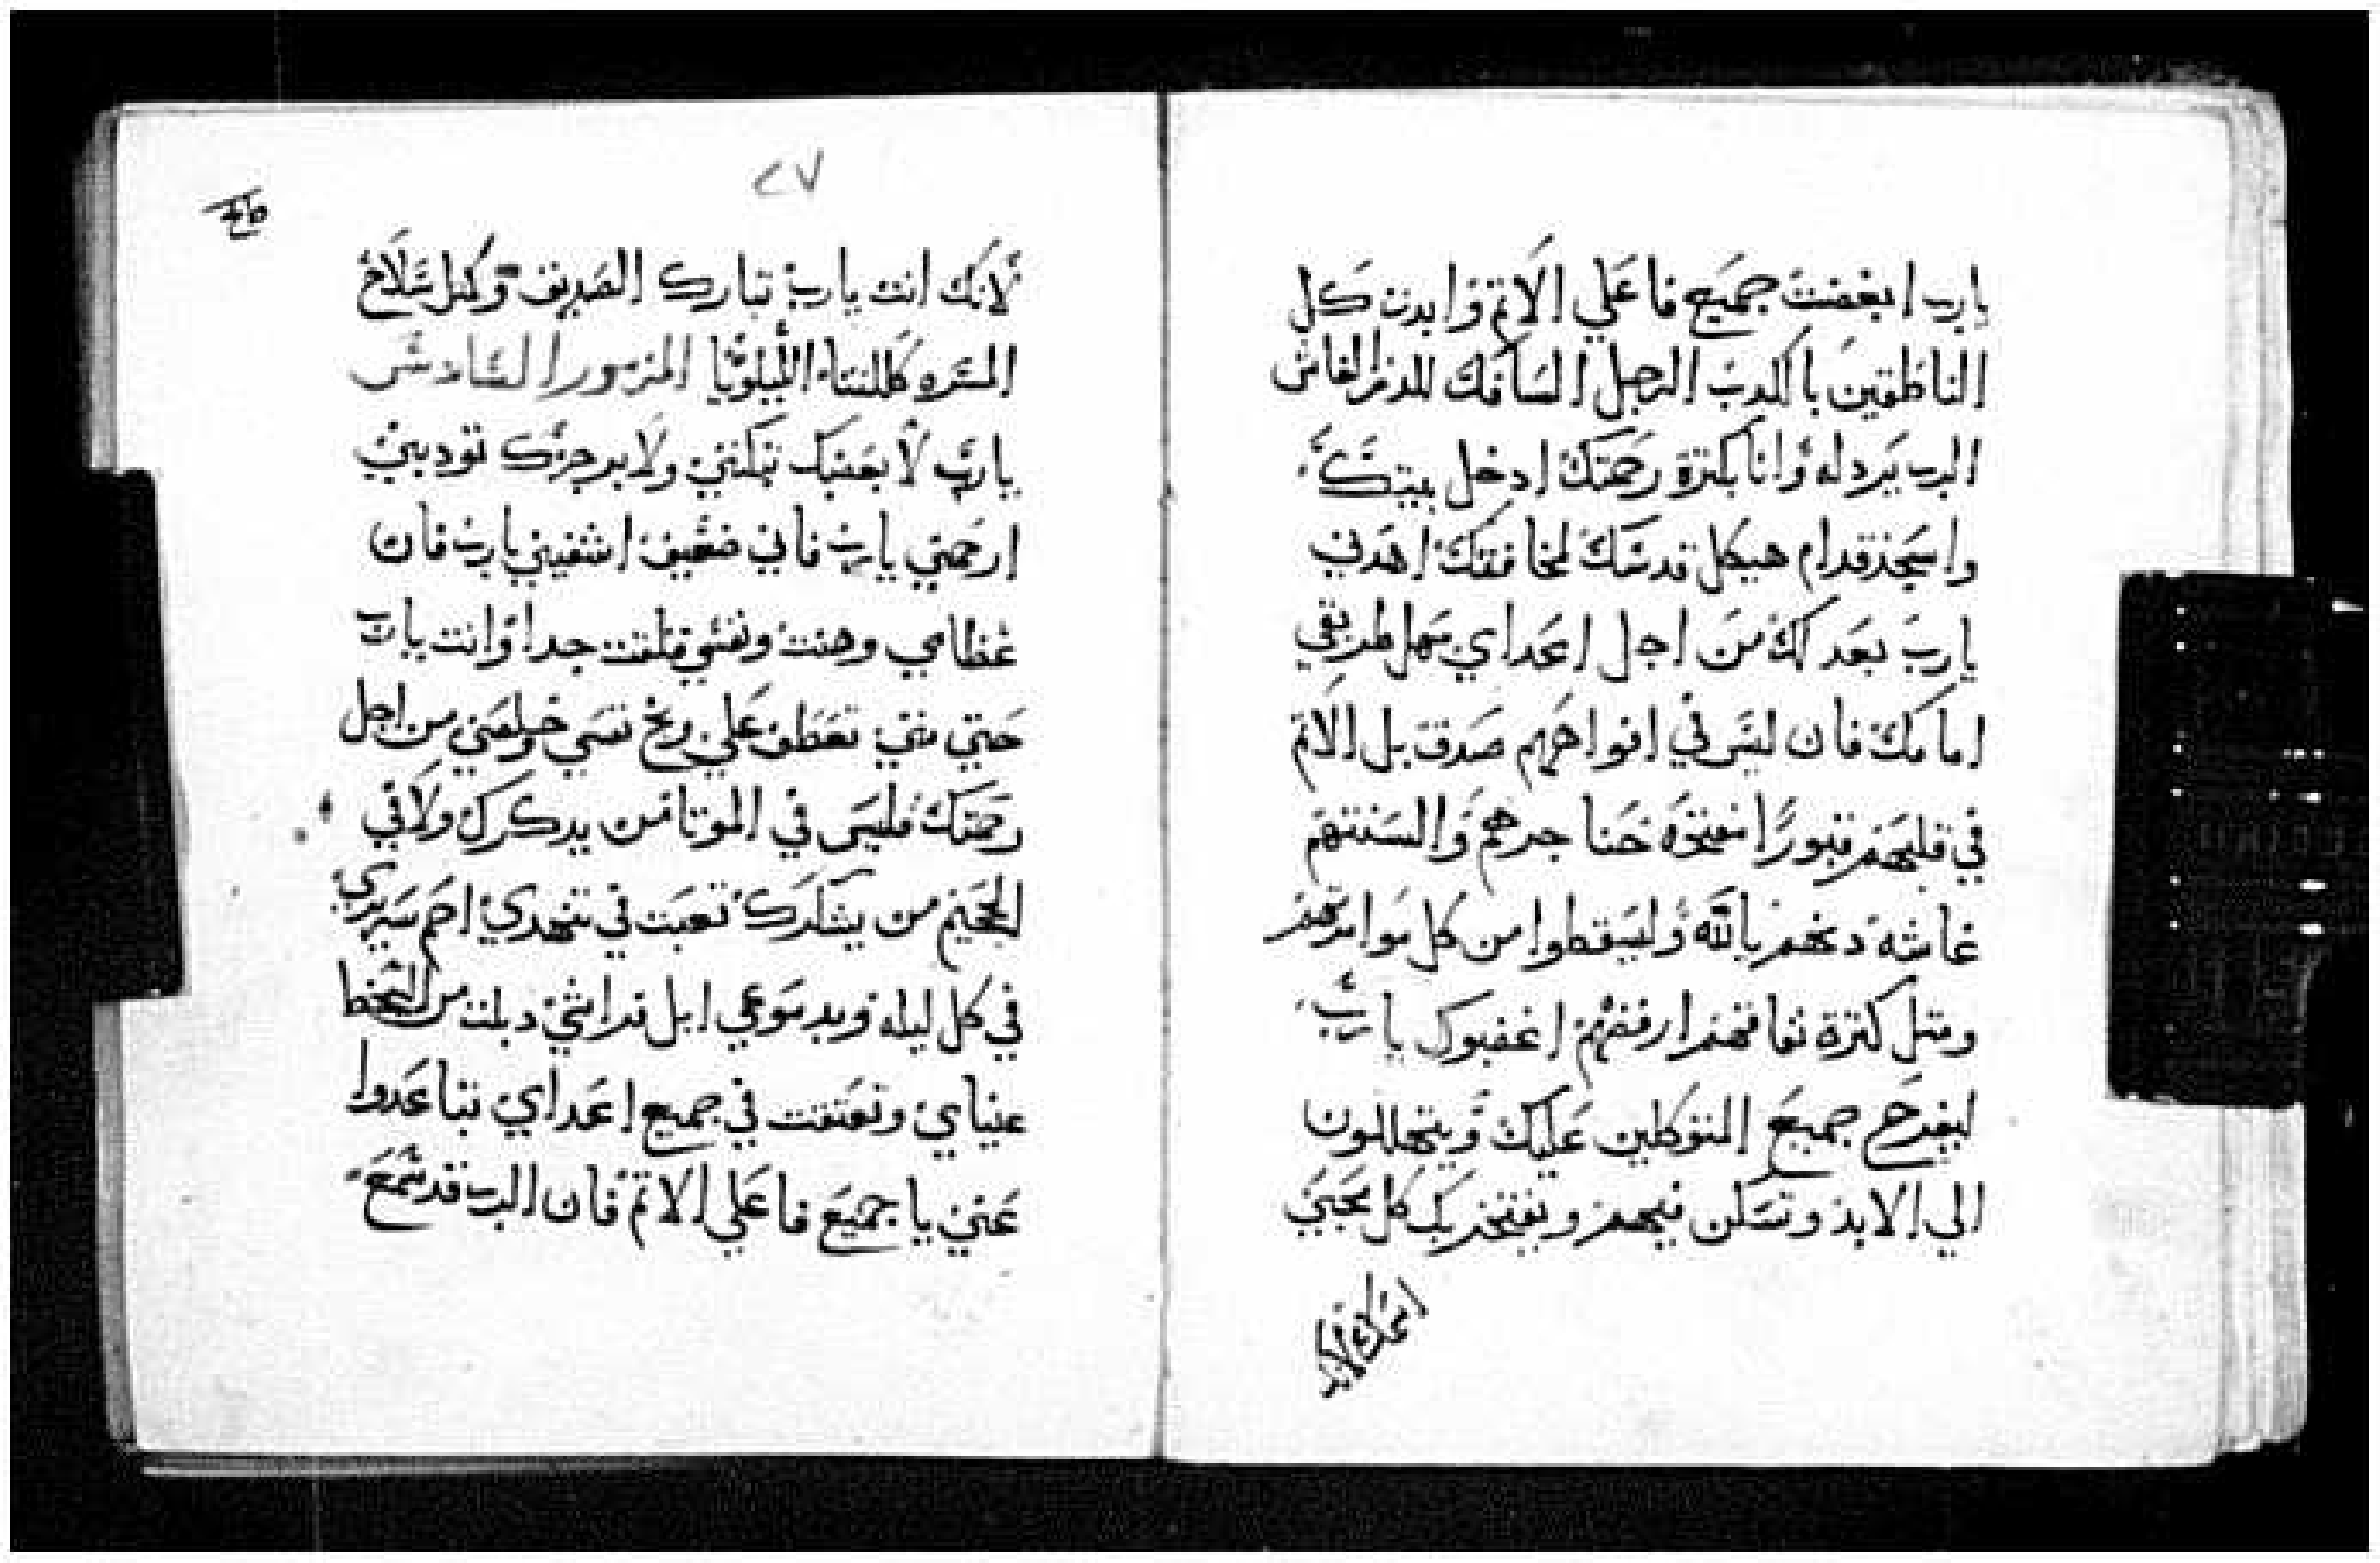 يارب ابغضت جميع فاعلي الاتم وابدت كل
الناطقين بالكدب الرجل السافك للدم الغاش
الرب يردله وانا بكترة رحمتك ادخل بيتك
واسجد قدام هيكل قدسك لمخافتك اهدني
يارب بعدلك من اجل اعداي سهل طريقي
امامك فان ليس في افواههم صدق بل الاتم
في قلبهم قبورا مفتوحه حناجرهم والسنتهم
غاشه دنهم يا الله وليسقطوا من كل موامرتهم
ومتل كترة نفاقهم ارفضهم اغضبوك يارب
ليفرح جميع المتوكلين عليك ويتهللون
الي الابد وتسكن فيهم ويفتخر بك كل محبي
اسمك لانك
٢٧
لانك انت يارب تبارك الصديق وكتل سلاح
المسره كللتنا الليلويا المزمور السادس
يارب لا بغضبك تبكتني ولا برجزك تودبني
ارحمني يارب فاني ضعيف اشفيني يارب فان
عظامي وهنت ونفسي قلقت جدا وانت يارب
حتي متي تعطف علي ونج نفسي خلصني من اجل
رحمتك فليس في الموتا من يدكرك ولا في
الجحيم من يشكرك تعبت في تنهدي احم سريري
في كل ليله وبدموعي ابل فراشي دبلت من السخط
عيناي وتعتقت في جميع اعداي تباعدوا
عني يا جميع فاعلي الاتم فان الرب قد سمع